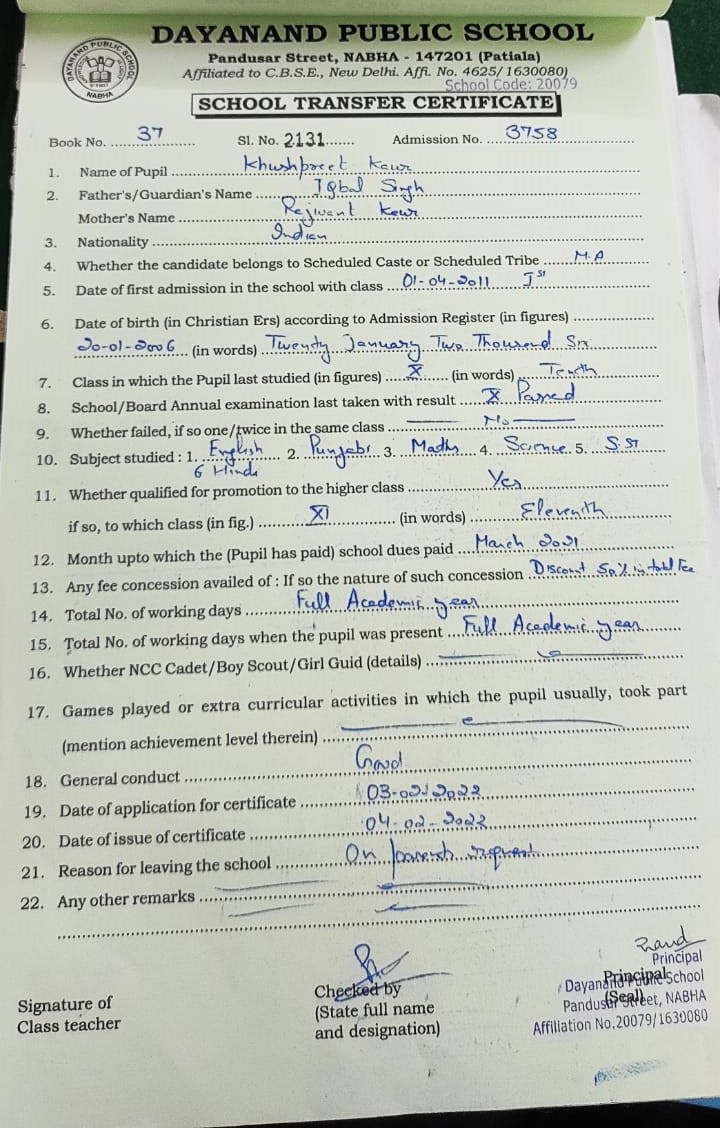 DAYANAND PUBLIC SCHOOL
Pandusar Street, NABHA - 147201 (Patiala)
Affiliated to C.B.S.E., New Delhi. Affi. No. 4625/1630080)
School Code: 20079
DAYANAND PUBLIC SCHOOL
NABHA
SCHOOL TRANSFER CERTIFICATE
Book No. 37 Sl. No. 2131 Admission No. 3758
1. Name of Pupil Khushpreet Kaur
2. Father's/Guardian's Name Iqbal Singh
Mother's Name Rejwant Kaur
3. Nationality Indian
4. Whether the candidate belongs to Scheduled Caste or Scheduled Tribe M.A
5. Date of first admission in the school with class 01-04-2011 Ist
6. Date of birth (in Christian Ers) according to Admission Register (in figures)
20-01-2006 (in words) Twenty January Two Thousand Six
7. Class in which the Pupil last studied (in figures) X (in words) Tenth
8. School/Board Annual examination last taken with result X Passed
9. Whether failed, if so one/twice in the same class No
10. Subject studied : 1. English 2. Punjabi 3. Maths 4. Science 5. S.ST
6 Hindi
11. Whether qualified for promotion to the higher class Yes
if so, to which class (in fig.) XI (in words) Eleventh
12. Month upto which the (Pupil has paid) school dues paid March 2021
13. Any fee concession availed of : If so the nature of such concession Discount 50% in total Fee
14. Total No. of working days Full Academic year
15. Total No. of working days when the pupil was present Full Academic year
16. Whether NCC Cadet/Boy Scout/Girl Guid (details)
17. Games played or extra curricular activities in which the pupil usually, took part
(mention achievement level therein)
18. General conduct Good
19. Date of application for certificate 03-02-2022
20. Date of issue of certificate 04-02-2022
21. Reason for leaving the school On parents request
22. Any other remarks
Signature of
Class teacher
Checked by
(State full name
and designation)
Principal
(Seal)
Principal
Dayanand Public School
Pandusar Street, NABHA
Affiliation No.20079/1630080